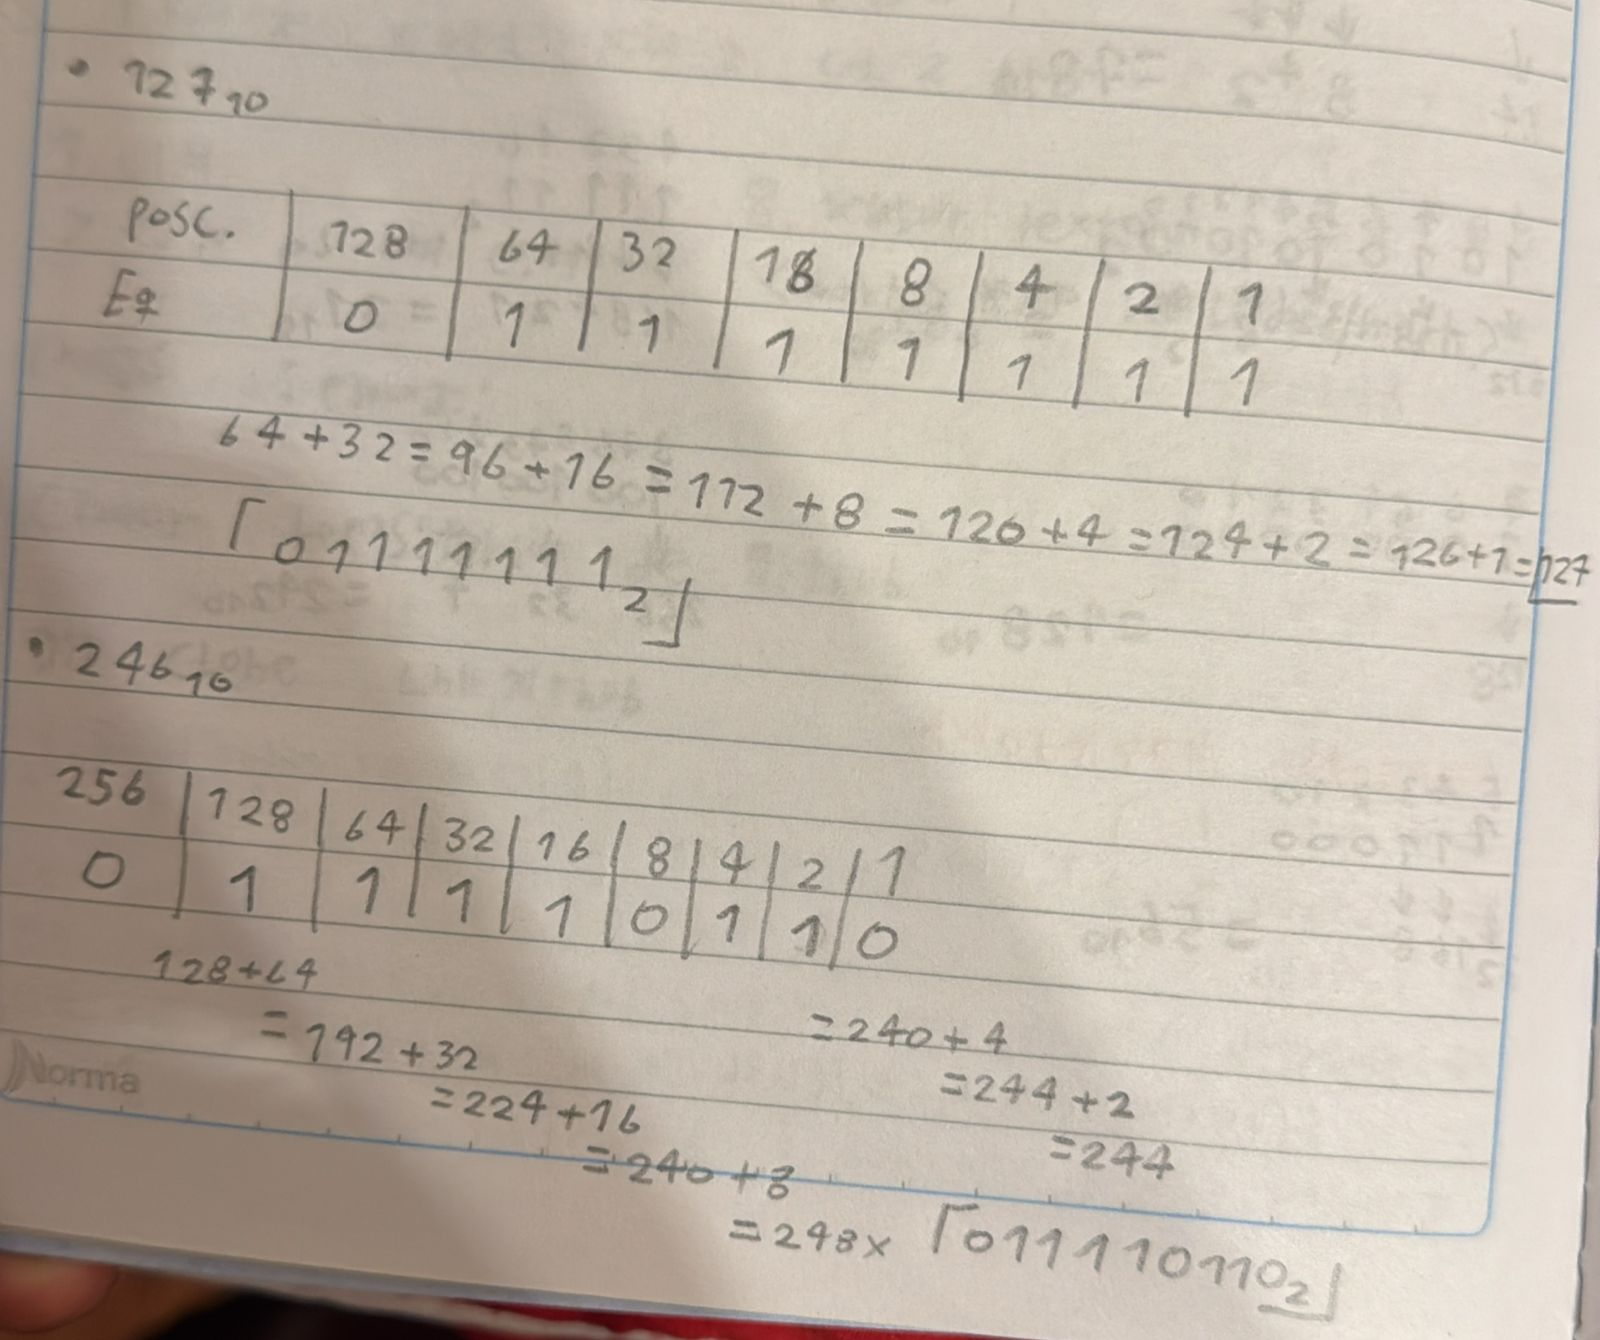 • 127₁₀
posc. | 128 | 64 | 32 | 18 | 8 | 4 | 2 | 1
Eq | 0 | 1 | 1 | 1 | 1 | 1 | 1 | 1
64+32=96+16=112+8=120+4=124+2=126+1=127
⌈01111111₂⌋
• 246₁₀
256 | 128 | 64 | 32 | 16 | 8 | 4 | 2 | 1
0 | 1 | 1 | 1 | 1 | 0 | 1 | 1 | 0
128+64
=192+32
=224+16
=240+8
=248x
=240+4
=244+2
=244
⌈011110110₂⌋
Norma